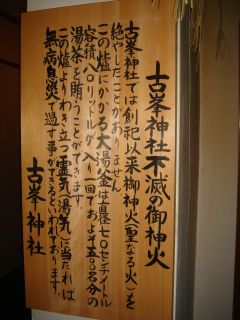 古峯神社不滅の御神火
古峯神社では創祀以来御神火(聖なる火)を
絶やしたことがありません
この炉にかかる大湯釜は直径七〇センチメートル
容積八〇リットルが入り一回でおよそ五〇〇名分の
湯茶を賄うことができます。
この炉よりわき立つ霊気、湯気に当たれば
無病息災で過す事ができるといわれております。
古峯神社